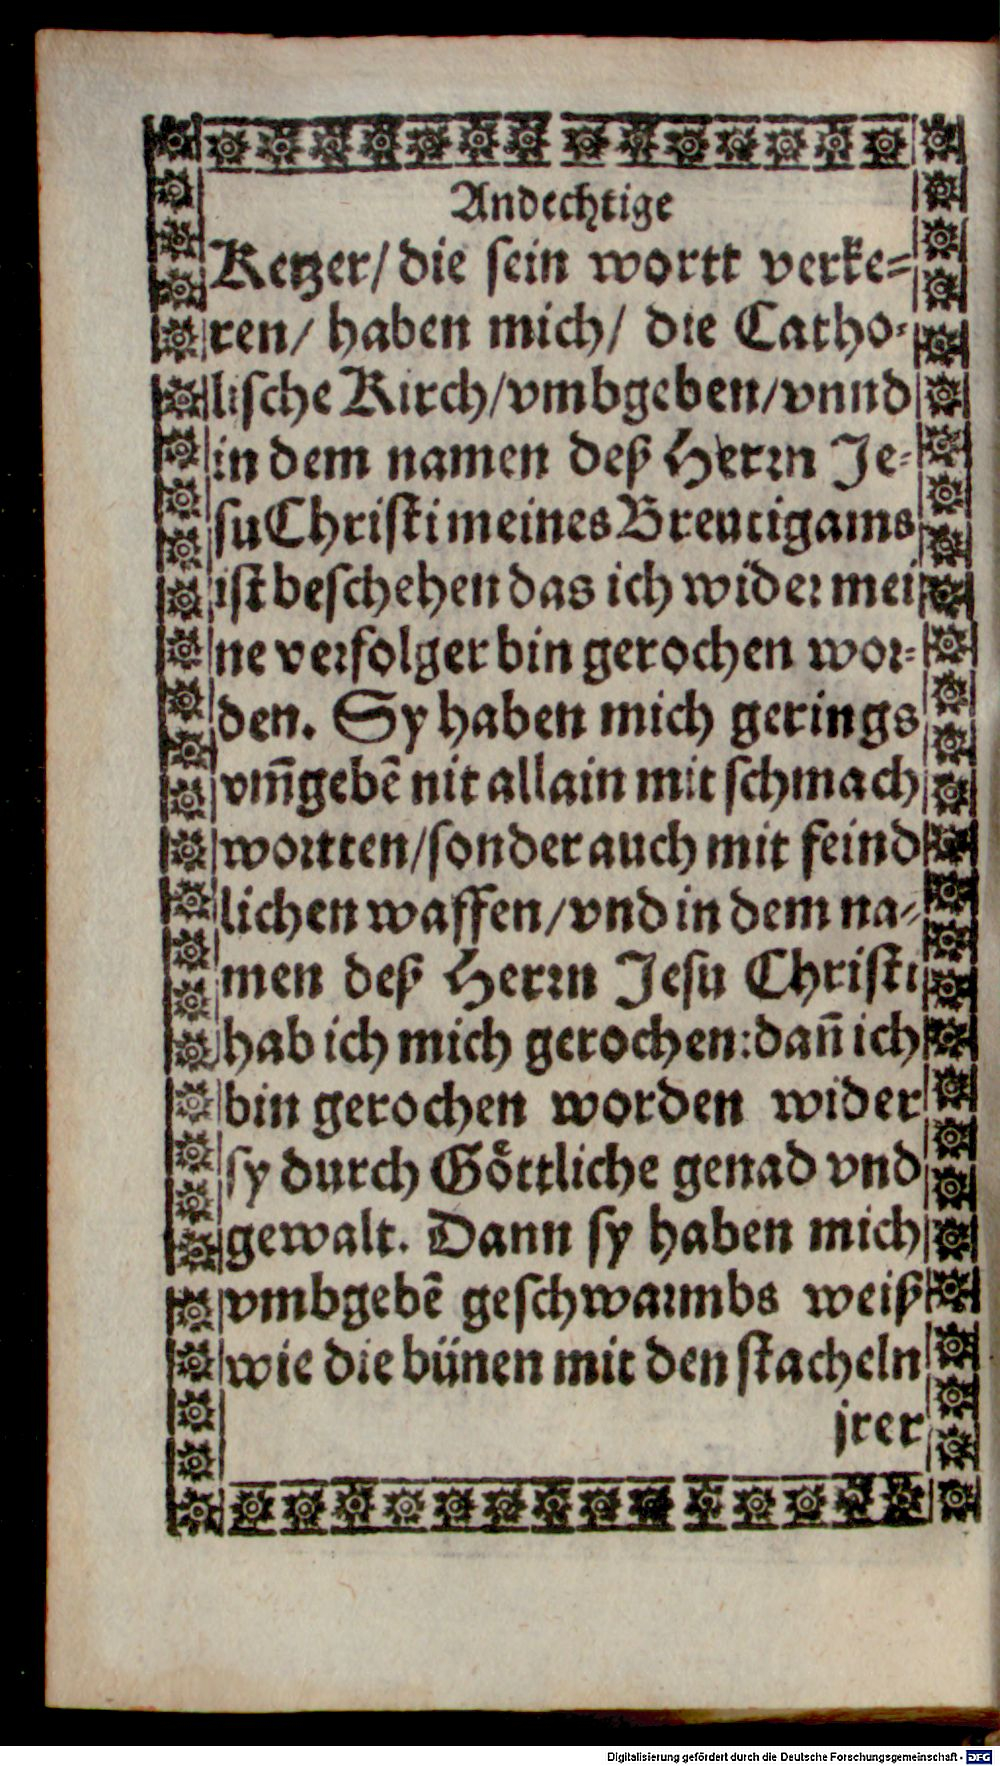 Andechtige
Ketzer/ die sein wortt verke⸗
ren/ haben mich/ die Catho⸗
lische Kirch/vmbgeben/vnnd
in dem namen deß Herrn Je⸗
su Christi meines Breutigams
ist beschehen das ich wider mei
ne verfolger bin gerochen wor⸗
den. Sy haben mich gerings
vm̃gebẽ nit allain mit schmach
wortten/sonder auch mit feind
lichen waffen/vnd in dem na⸗
men deß Herrn Jesu Christi
hab ich mich gerochen: dañ ich
bin gerochen worden wider
sy durch Göttliche genad vnd
gewalt. Dann sy haben mich
vmbgebẽ geschwarmbs weiß
wie die bünen mit den stacheln
jrer
Digitalisierung gefördert durch die Deutsche Forschungsgemeinschaft - DFG